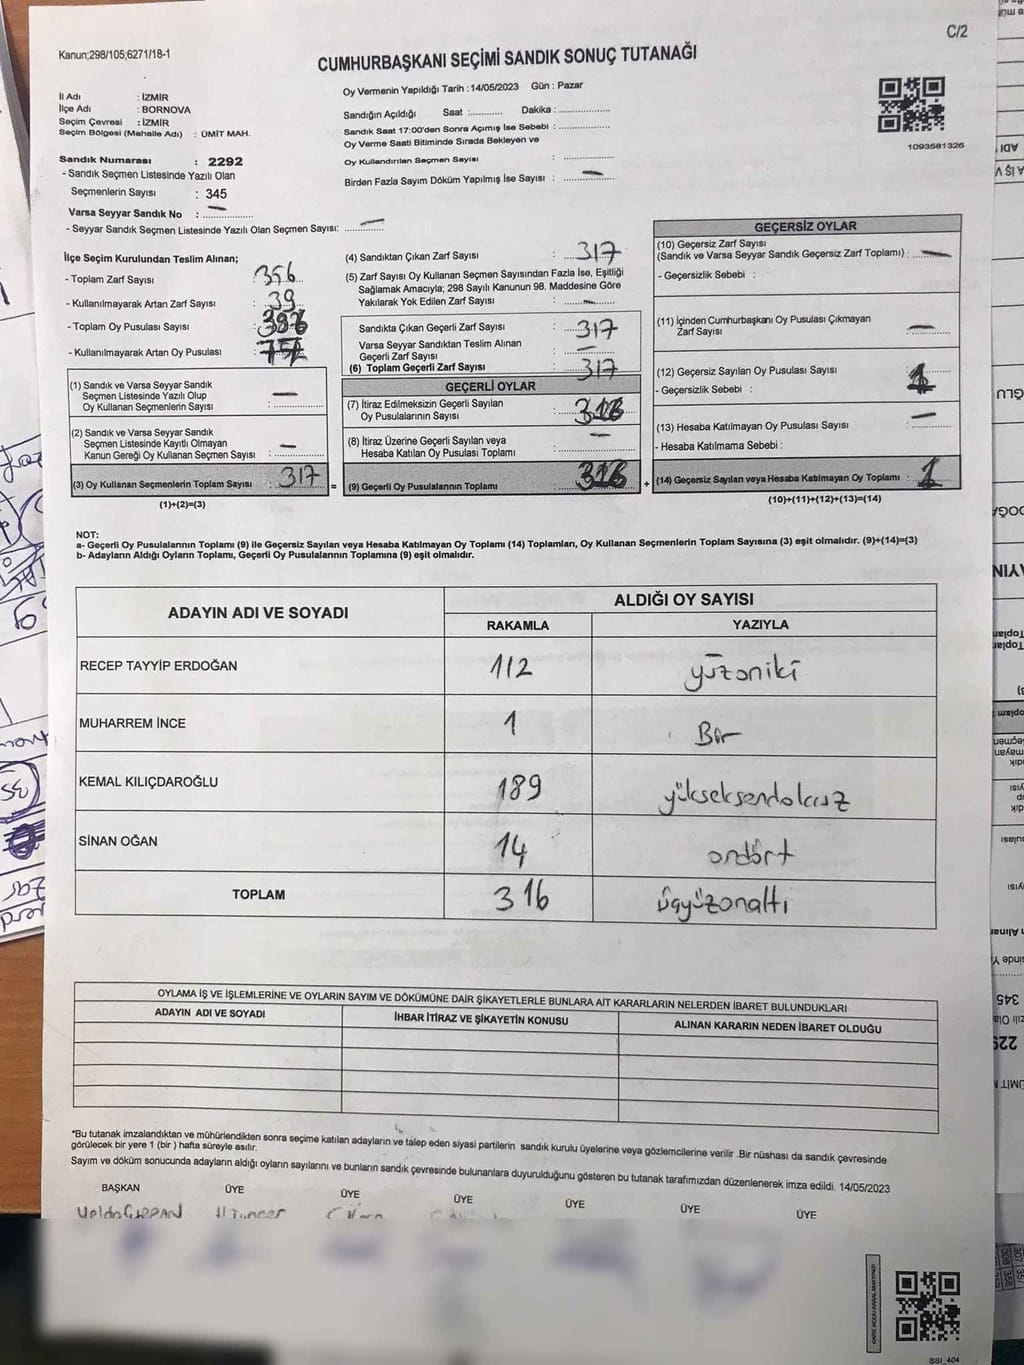 C/2
Kanun;298/105;6271/18-1
CUMHURBAŞKANI SEÇİMİ SANDIK SONUÇ TUTANAĞI
İl Adı : İZMİR
İlçe Adı : BORNOVA
Seçim Çevresi : İZMİR
Seçim Bölgesi (Mahalle Adı) : ÜMİT MAH.
Sandık Numarası : 2292
- Sandık Seçmen Listesinde Yazılı Olan
Seçmenlerin Sayısı : 345
Varsa Seyyar Sandık No : —
- Seyyar Sandık Seçmen Listesinde Yazılı Olan Seçmen Sayısı: —
Oy Vermenin Yapıldığı Tarih :14/05/2023 Gün : Pazar
Sandığın Açıldığı Saat :............ Dakika :..............
Sandık Saat 17:00'den Sonra Açımış İse Sebebi :..............
Oy Verme Saati Bitiminde Sırada Bekleyen ve
Oy Kullandırılan Seçmen Sayısı : ..............
Birden Fazla Sayım Döküm Yapılmış İse Sayısı : —
1093581326
İlçe Seçim Kurulundan Teslim Alınan;
- Toplam Zarf Sayısı : 356
- Kullanılmayarak Artan Zarf Sayısı : 39
- Toplam Oy Pusulası Sayısı :
- Kullanılmayarak Artan Oy Pusulası :
(1) Sandık ve Varsa Seyyar Sandık
Seçmen Listesinde Yazılı Olup
Oy Kullanan Seçmenlerin Sayısı : —
(2) Sandık ve Varsa Seyyar Sandık
Seçmen Listesinde Kayıtlı Olmayan
Kanun Gereği Oy Kullanan Seçmen Sayısı : —
(3) Oy Kullanan Seçmenlerin Toplam Sayısı : 317 =
(1)+(2)=(3)
(4) Sandıktan Çıkan Zarf Sayısı : 317
(5) Zarf Sayısı Oy Kullanan Seçmen Sayısından Fazla İse, Eşitliği
Sağlamak Amacıyla; 298 Sayılı Kanunun 98. Maddesine Göre
Yakılarak Yok Edilen Zarf Sayısı : —
Sandıkta Çıkan Geçerli Zarf Sayısı : 317
Varsa Seyyar Sandıktan Teslim Alınan
Geçerli Zarf Sayısı : —
(6) Toplam Geçerli Zarf Sayısı : 317
GEÇERLİ OYLAR
(7) İtiraz Edilmeksizin Geçerli Sayılan
Oy Pusulalarının Sayısı : 316
(8) İtiraz Üzerine Geçerli Sayılan veya
Hesaba Katılan Oy Pusulası Toplamı : —
(9) Geçerli Oy Pusulalarının Toplamı : 316 +
GEÇERSİZ OYLAR
(10) Geçersiz Zarf Sayısı
(Sandık ve Varsa Seyyar Sandık Geçersiz Zarf Toplamı) : —
- Geçersizlik Sebebi :
(11) İçinden Cumhurbaşkanı Oy Pusulası Çıkmayan
Zarf Sayısı : —
(12) Geçersiz Sayılan Oy Pusulası Sayısı : 1
- Geçersizlik Sebebi :
(13) Hesaba Katılmayan Oy Pusulası Sayısı : —
- Hesaba Katılmama Sebebi :
(14) Geçersiz Sayılan veya Hesaba Katılmayan Oy Toplamı : 1
(10)+(11)+(12)+(13)=(14)
NOT:
a- Geçerli Oy Pusulalarının Toplamı (9) ile Geçersiz Sayılan veya Hesaba Katılmayan Oy Toplamı (14) Toplamları, Oy Kullanan Seçmenlerin Toplam Sayısına (3) eşit olmalıdır. (9)+(14)=(3)
b- Adayların Aldığı Oyların Toplamı, Geçerli Oy Pusulalarının Toplamına (9) eşit olmalıdır.
ADAYIN ADI VE SOYADI ALDIĞI OY SAYISI
RAKAMLA YAZIYLA
RECEP TAYYİP ERDOĞAN 112 yüzoniki
MUHARREM İNCE 1 Bir
KEMAL KILIÇDAROĞLU 189 yükseksendokuz
SİNAN OĞAN 14 ondört
TOPLAM 316 üçyüzonaltı
OYLAMA İŞ VE İŞLEMLERİNE VE OYLARIN SAYIM VE DÖKÜMÜNE DAİR ŞİKAYETLERLE BUNLARA AİT KARARLARIN NELERDEN İBARET BULUNDUKLARI
ADAYIN ADI VE SOYADI İHBAR İTİRAZ VE ŞİKAYETİN KONUSU ALINAN KARARIN NEDEN İBARET OLDUĞU
*Bu tutanak imzalandıktan ve mühürlendikten sonra seçime katılan adayların ve talep eden siyasi partilerin sandık kurulu üyelerine veya gözlemcilerine verilir .Bir nüshası da sandık çevresinde
görülecek bir yere 1 (bir ) hafta süreyle asılır.
Sayım ve döküm sonucunda adayların aldığı oyların sayılarını ve bunların sandık çevresinde bulunanlara duyurulduğunu gösteren bu tutanak tarafımızdan düzenlenerek imza edildi. 14/05/2023
BAŞKAN ÜYE ÜYE ÜYE ÜYE ÜYE ÜYE
SSI_404